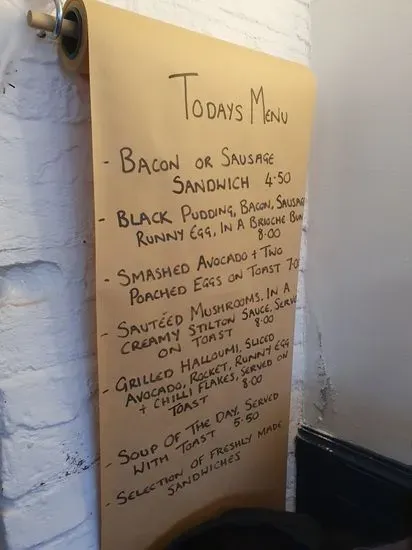 TODAYS MENU
- BACON OR SAUSAGE
SANDWICH 4.50
- BLACK PUDDING, BACON, SAUSAGE
RUNNY EGG, IN A BRIOCHE BUN
8.00
- SMASHED AVOCADO + TWO
POACHED EGGS ON TOAST 7.0
- SAUTÉED MUSHROOMS, IN A
CREAMY STILTON SAUCE, SERVED
ON TOAST 8.00
- GRILLED HALLOUMI, SLICED
AVOCADO, ROCKET, RUNNY EGG
+ CHILLI FLAKES, SERVED ON
TOAST 8.00
- SOUP OF THE DAY, SERVED
WITH TOAST 5.50
- SELECTION OF FRESHLY MADE
SANDWICHES